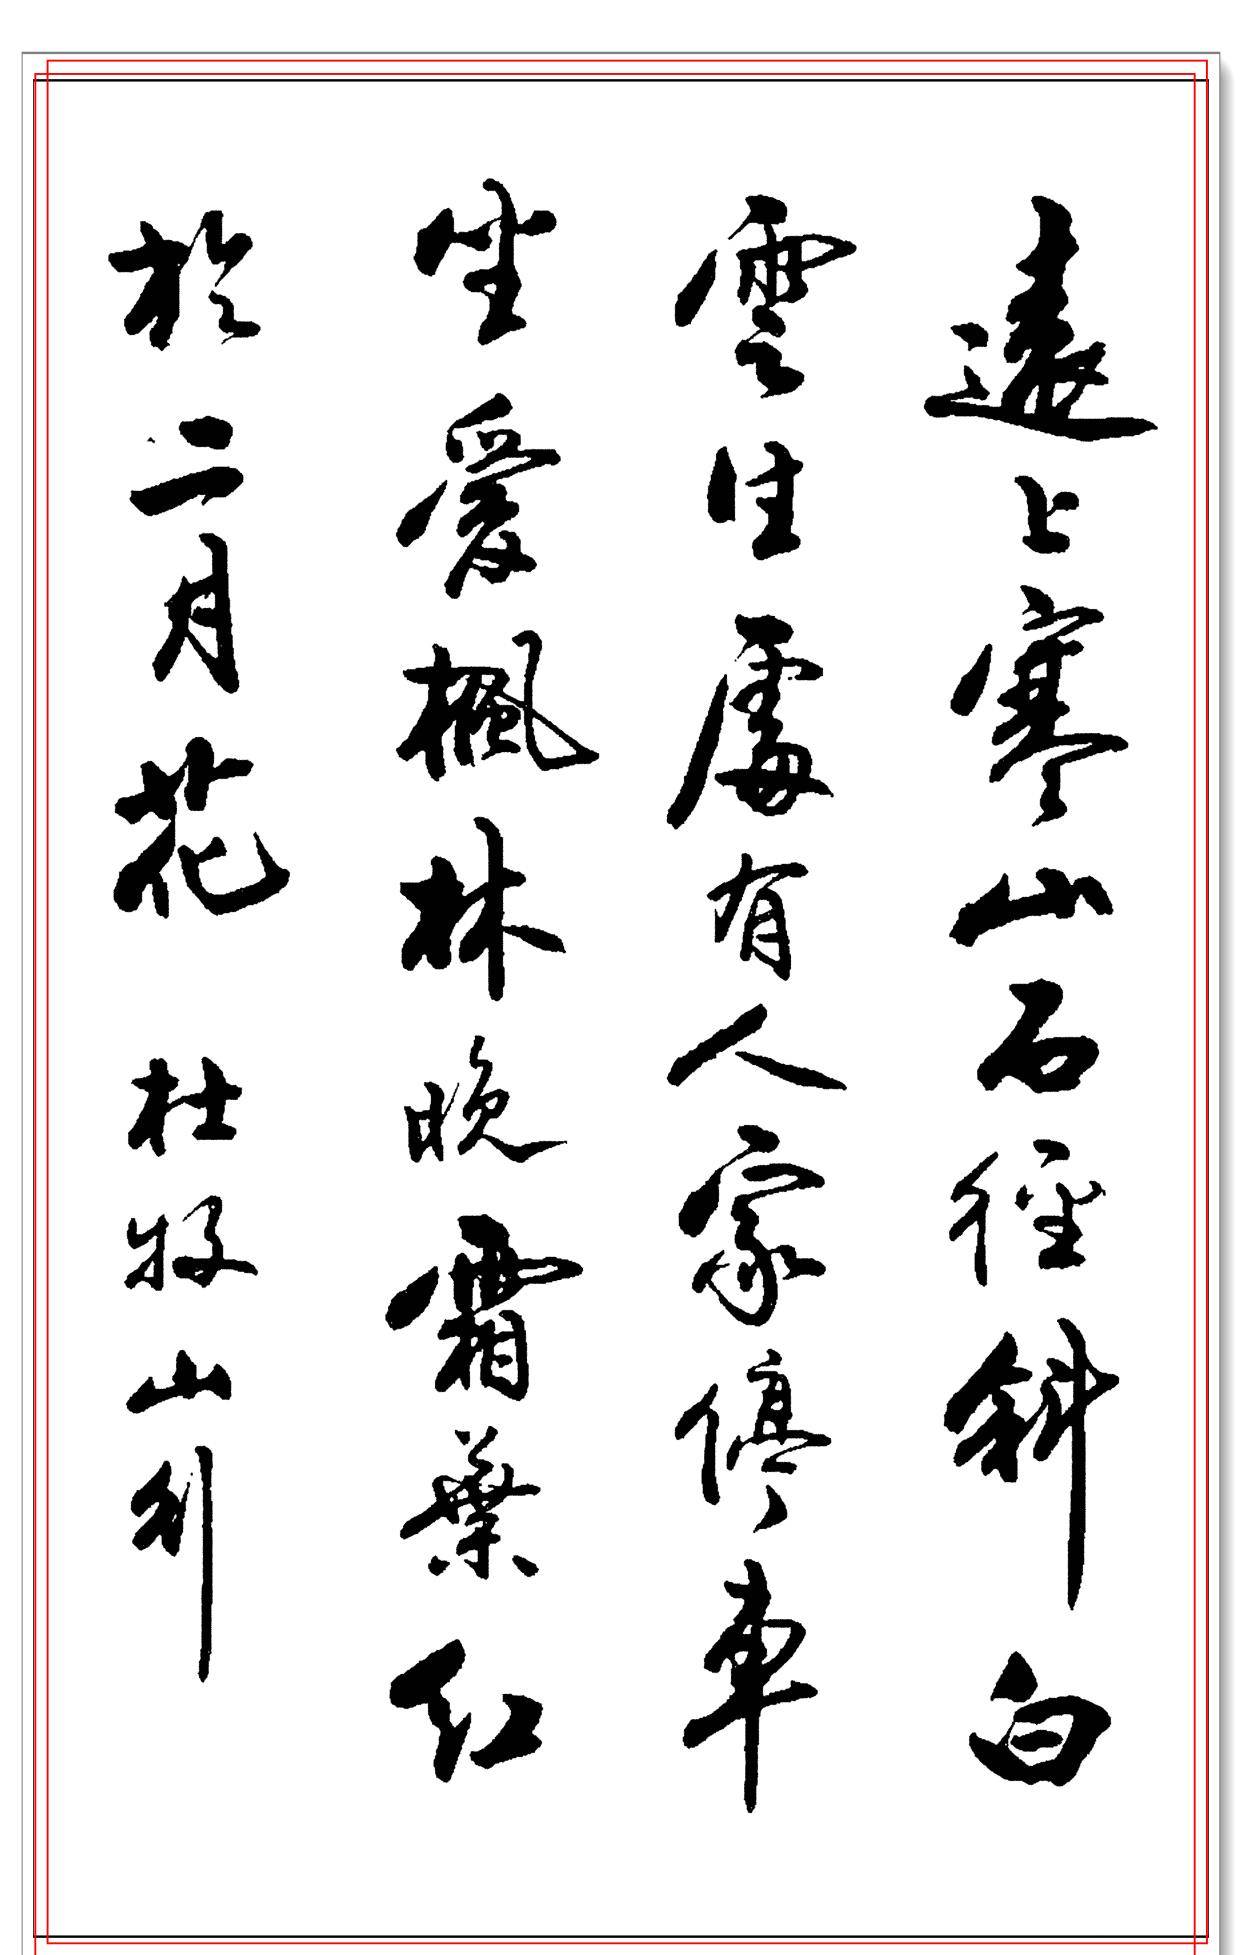 遠上寒山石徑斜白
雲生處有人家停車
坐愛楓林晚霜葉紅
於二月花 杜牧山行